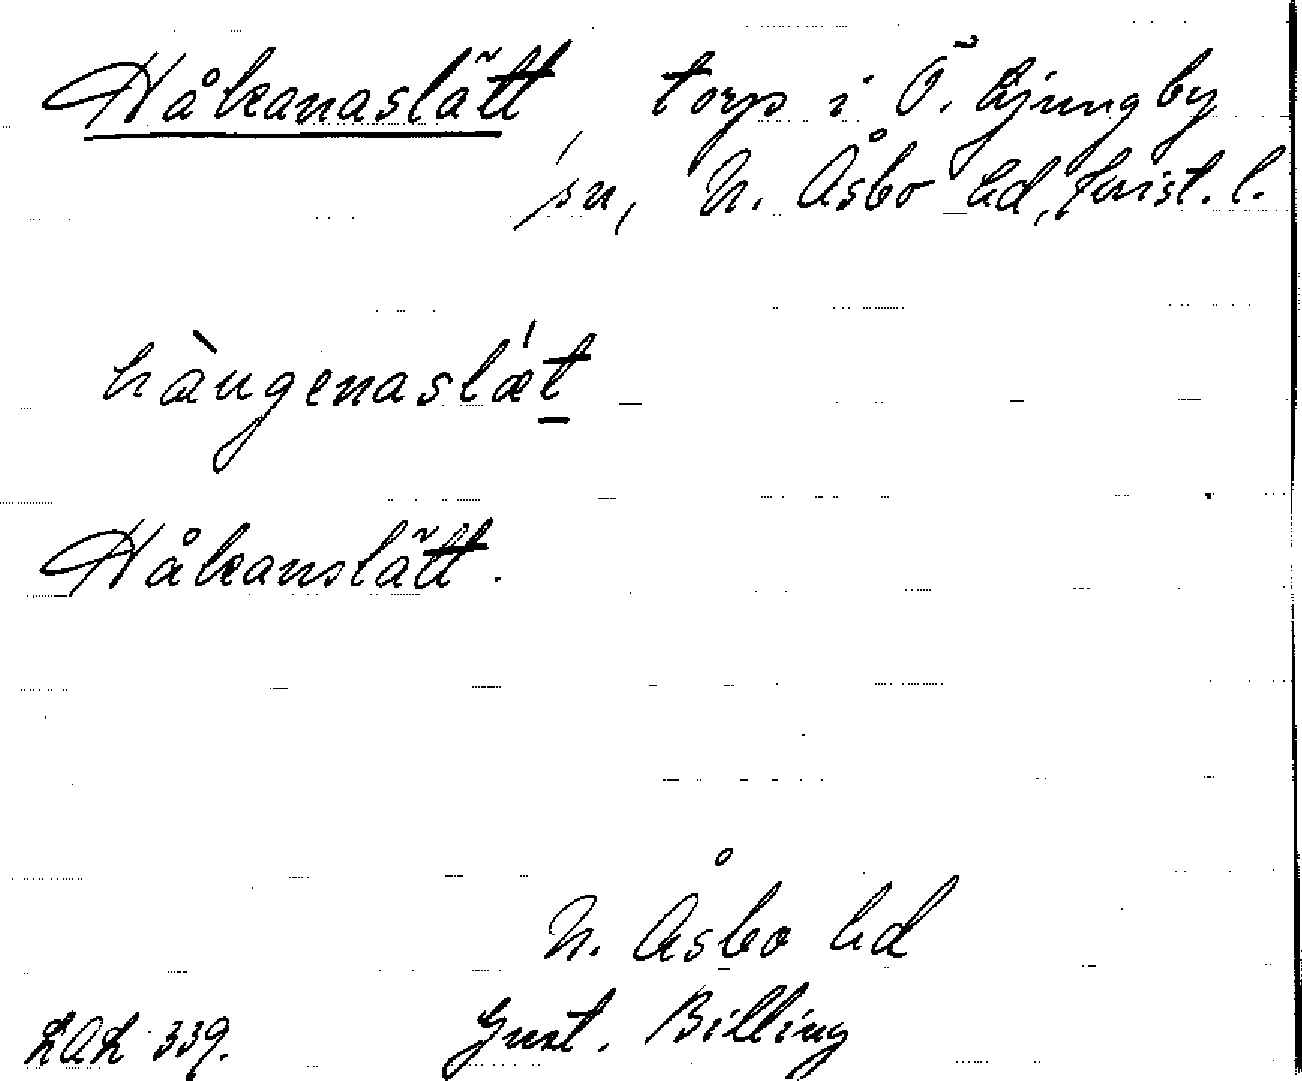 Håkanaslätt, torp i Ö. Ljungby
sn, N. Åsbo hd, Krist. l.
hàugenaslǽt
Håkanslätt.
N. Åsbo hd
LAL 339. Gust. Billing